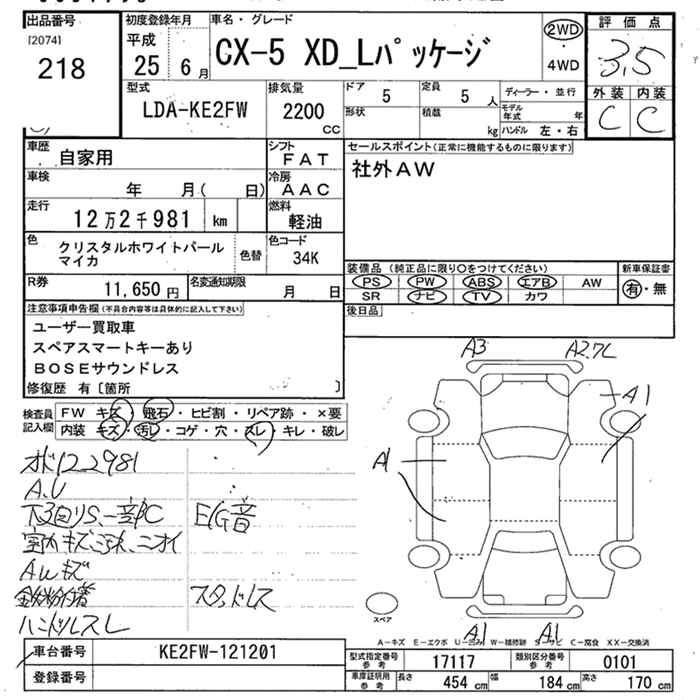 出品番号
[2074]
218
初度登録年月
平成
25 6月
車名・グレード
CX-5 XD_Lパッケージ
2WD
・
4WD
評価点
3.5
外装 内装
C C
型式
LDA-KE2FW
排気量
2200
CC
ドア
5
定員
5 人
形状
積載
kg
ディーラー・並行
モデル年式 年
ハンドル 左・右
車歴
自家用
シフト
FAT
車検
年 月( 日)
冷房
AAC
走行
12万2千981 km
燃料
軽油
色
クリスタルホワイトパールマイカ
色替
色コード
34K
R券
11,650円
名変通知期限
月 日
セールスポイント(正常に機能するものに限ります)
社外AW
装備品 (純正品に限り○をつけてください)
PS PW ABS エアB AW
SR ナビ TV カワ
新車保証書
有・無
後日品
注意事項申告欄(不具合内容等は具体的に記入して下さい)
ユーザー買取車
スペアスマートキーあり
BOSEサウンドレス
修復歴 有〔箇所 〕
検査員記入欄
FW キズ・飛石・ヒビ割・リペア跡・×要
内装 キズ・汚レ・コゲ・穴・スレ・キレ・破レ
オド122981
A.U
下回りS、一部C E/G音
室内キズ、汚れ、ニオイ
AWキズ
鉄粉付着 スタッドレス
ハンドルスレ
A3 A2.7L
A1
A1
A1 A1
スペア
A－キズ E－エクボ U－凹み W－補修跡 S－サビ C－腐食 XX－交換済
車台番号
KE2FW-121201
登録番号
型式指定番号 参考
17117
類別区分番号 参考
0101
車庫証明用 参考
長さ 454 cm
幅 184 cm
高さ 170 cm